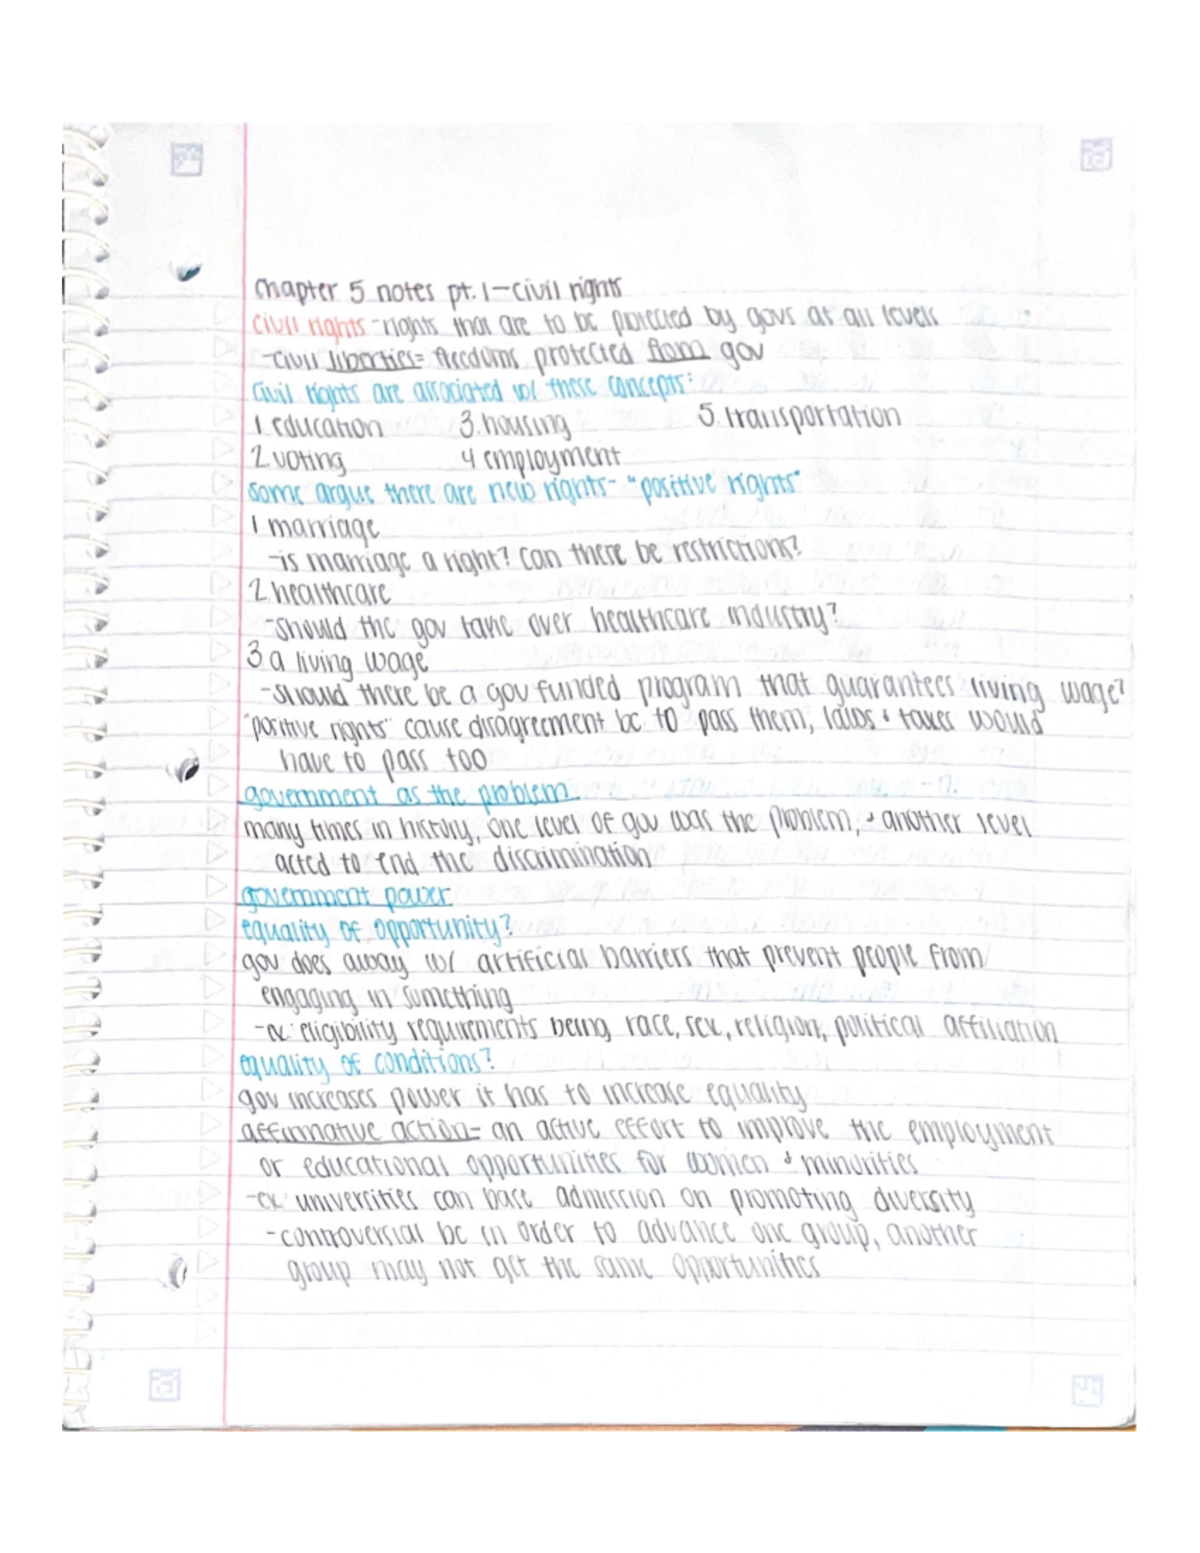 Chapter 5 notes pt. 1 - civil rights
civil rights - rights that are to be protected by govs at all levels
- civil liberties = freedoms protected from gov
civil rights are associated w/ these concepts:
1. education 3. housing 5. transportation
2. voting 4. employment
some argue there are new rights - "positive rights"
1. marriage
- is marriage a right? can there be restrictions?
2. healthcare
- should the gov take over healthcare industry?
3. a living wage
- should there be a gov funded program that guarantees living wage?
"positive rights" cause disagreement bc to pass them, laws & taxes would
have to pass too
government as the problem
many times in history, one level of gov was the problem, & another level
acted to end the discrimination
government power
equality of opportunity?
gov does away w/ artificial barriers that prevent people from
engaging in something
- ex: eligibility requirements being race, sex, religion, political affiliation
equality of conditions?
gov increases power it has to increase equality
affirmative action = an active effort to improve the employment
or educational opportunities for women & minorities
- ex: universities can base admission on promoting diversity
- controversial bc in order to advance one group, another
group may not get the same opportunities